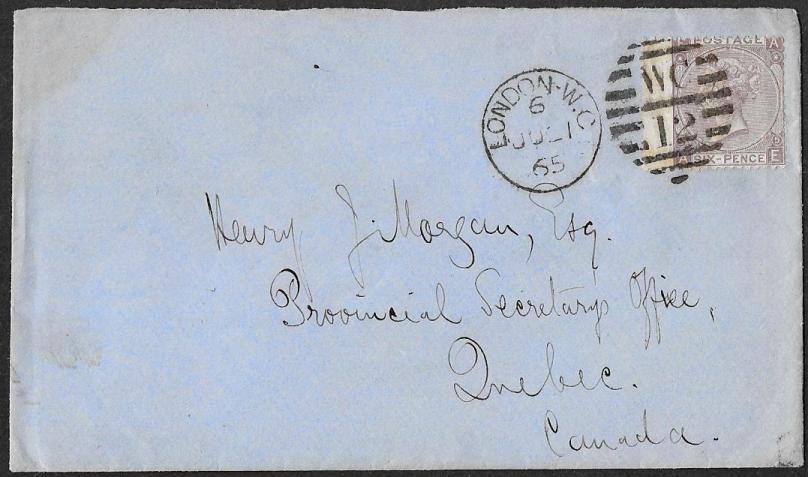 POSTAGE
E A
WC
12
A SIX-PENCE E
LONDON-W.C
6
JUL 1
65
Henry J. Morgan, Esq.
Provincial Secretary's Office,
Quebec.
Canada.